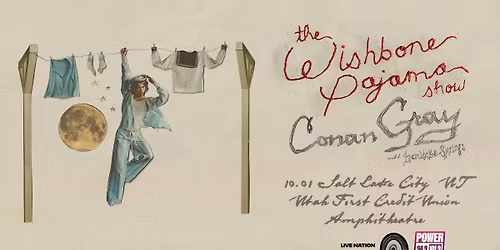 the
Wishbone
Pajama
show
Conan Gray
10.01 Salt Lake City UT
Utah First Credit Union
Amphitheatre
LIVE NATION
POWER